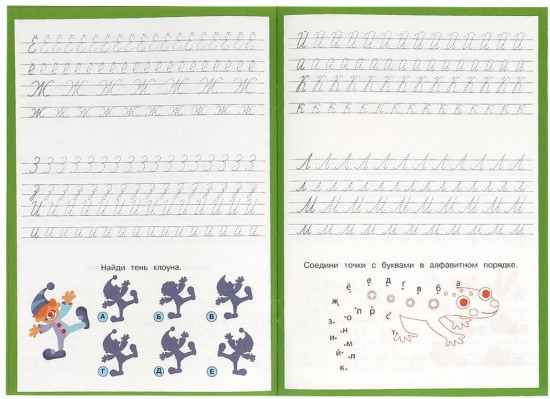 Ё Ё Ё Ё Ё Ё Ё Ё Ё Ё Ё Ё Ё Ё
ё ё ё ё ё ё ё ё ё ё ё ё ё ё
Ж Ж Ж Ж Ж Ж Ж Ж
ж ж ж ж ж ж ж ж ж ж
З З З З З З З З З З З З З З
з з з з з з з з з з з з з з
И И И И И И И И И И И И
и и и и и и и и и и и и
Найди тень клоуна.
А Б В
Г Д Е
Й Й Й Й Й Й Й Й Й Й Й Й
й й й й й й й й й й й й
К К К К К К К К К К К К
к к к к к к к к к к к к
Л Л Л Л Л Л Л Л Л Л Л Л
л л л л л л л л л л л л
М М М М М М М М М М М
м м м м м м м м м м м
Соедини точки с буквами в алфавитном порядке.
ё е д г в б а
ж п р с
з о
и н
м
й л
к